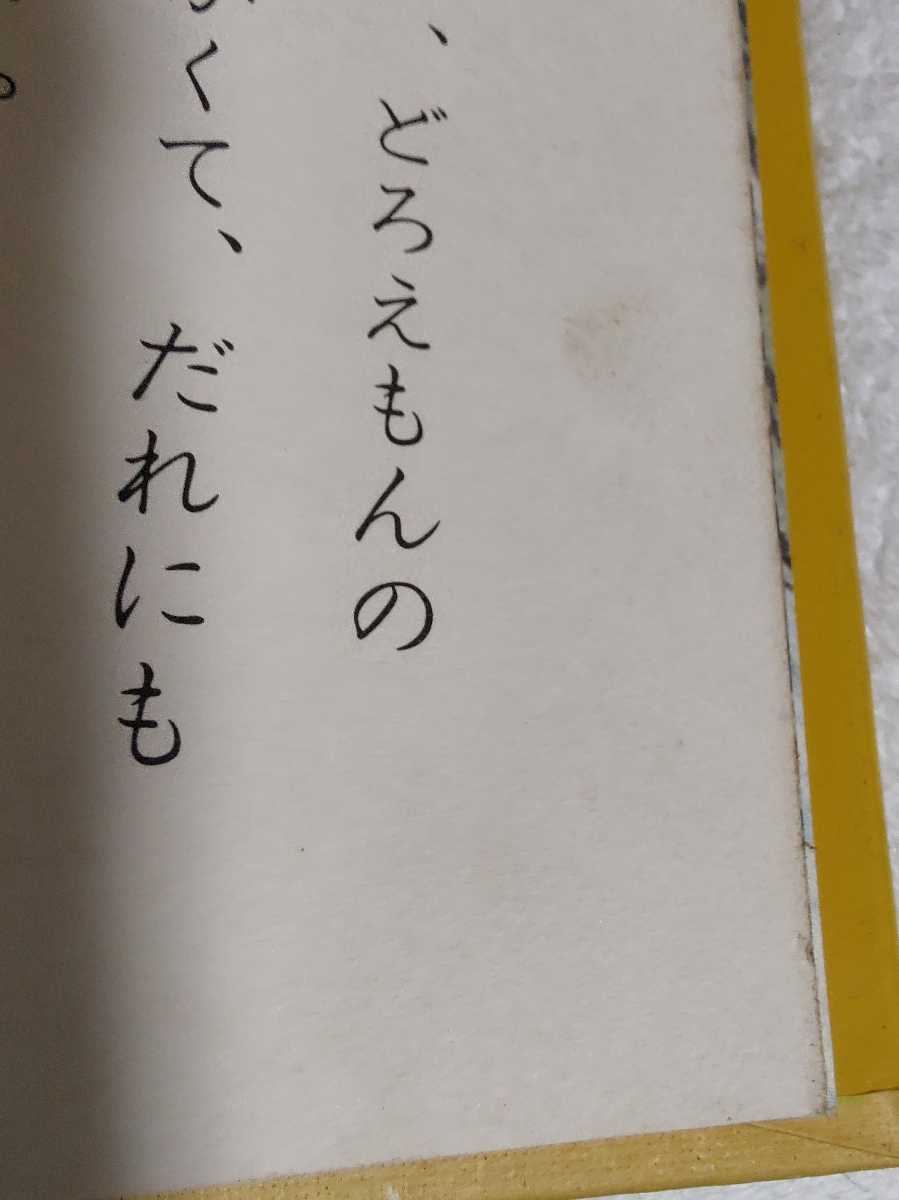 、どろえもんの
くて、だれにも
。